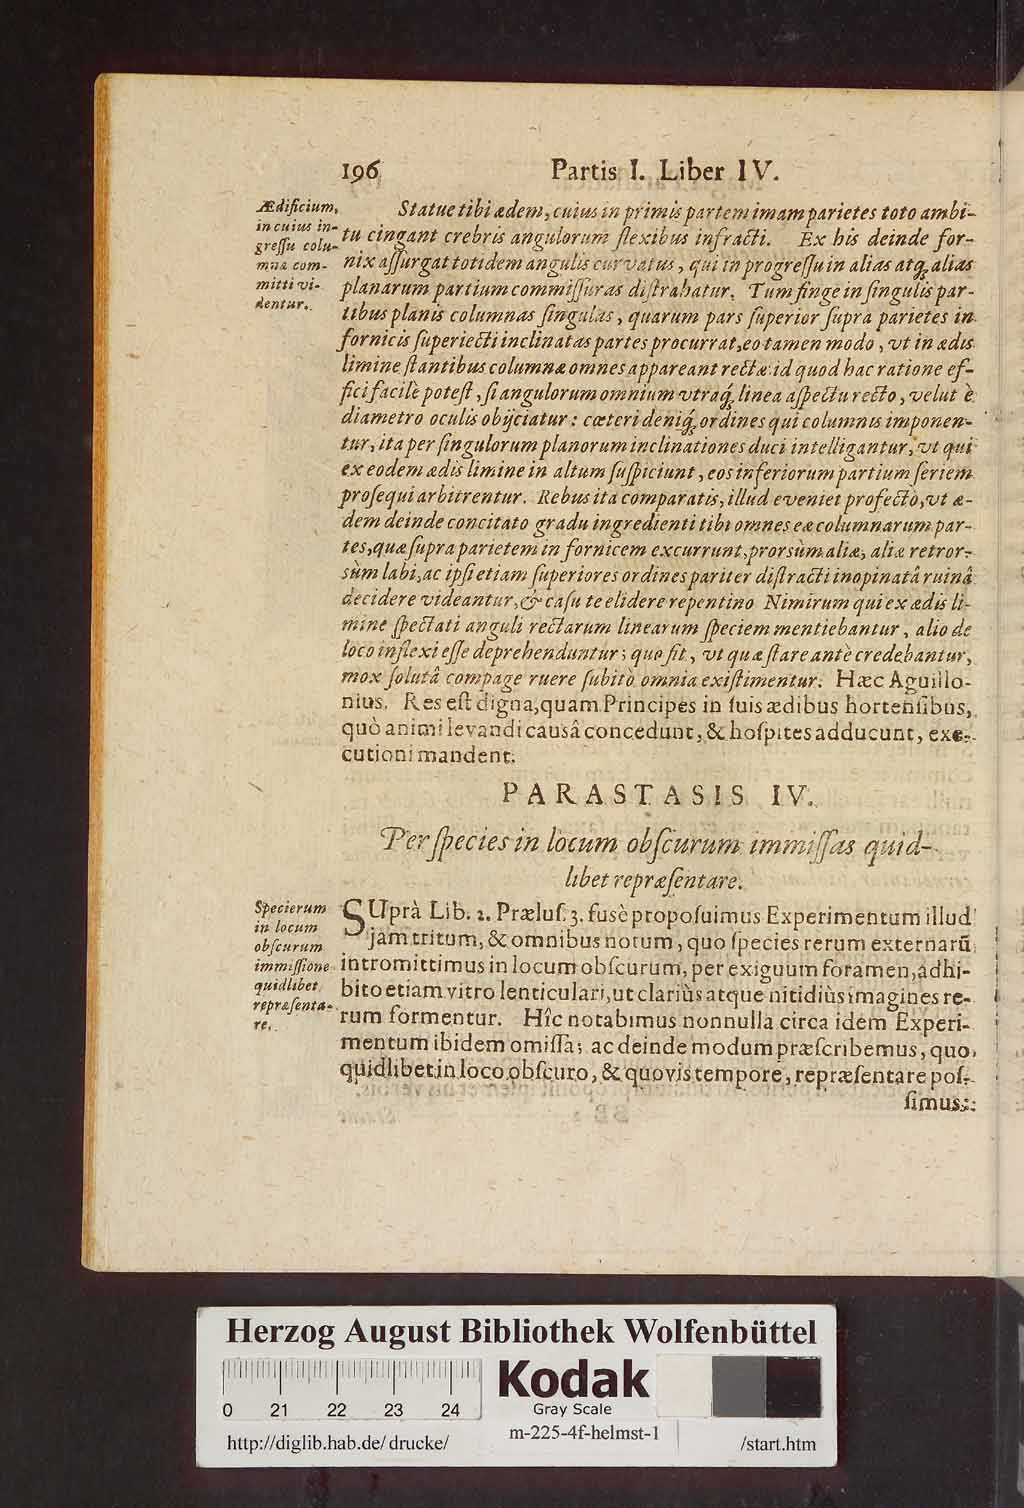 196 Partis I. Liber IV.
Ædificium,
in cuius in-
greſſu colu-
mnæ com-
mitti vi-
dentur.
Statue tibi ædem, cuius in primis partem imam parietes toto ambi-
tu cingant crebris angulorum flexibus infracti. Ex his deinde for-
nix aſſurgat totidem angulis curvatus, qui in progreſſu in alias atq́; alias
planarum partium commiſſuras diſtrahatur. Tum finge in ſingulis par-
tibus planis columnas ſingulas, quarum pars ſuperior ſupra parietes in
fornicis ſuperiecti inclinatas partes procurrat, eo tamen modo, vt in ædis
limine ſtantibus columnæ omnes appareant rectæ: id quod hac ratione ef-
fici facilè poteſt, ſi angulorum omnium vtraq́; linea aſpectu recto, velut è
diametro oculis obijciatur: cæteri deniq́; ordines qui columnis imponen-
tur, ita per ſingulorum planorum inclinationes duci intelligantur, vt qui
ex eodem ædis limine in altum ſuſpiciunt, eos inferiorum partium ſeriem
proſequi arbitrentur. Rebus ita comparatis, illud eveniet profectò, vt æ-
dem deinde concitato gradu ingredienti tibi omnes eæ columnarum par-
tes, quæ ſupra parietem in fornicem excurrunt, prorsùm aliæ, aliæ retror-
sùm labi, ac ipſi etiam ſuperiores ordines pariter diſtracti inopinatâ ruinâ
decidere videantur, & caſu te elidere repentino Nimirum qui ex ædis li-
mine ſpectati anguli rectarum linearum ſpeciem mentiebantur, alio de
loco inflexi eſſe deprehenduntur; quo fit, vt quæ ſtare antè credebantur,
mox ſolutâ compage ruere ſubitò omnia exiſtimentur. Hæc Aguillo-
nius. Res eſt digna, quam Principes in ſuis ædibus hortenſibus,
quò animi levandi causâ concedunt, & hoſpites adducunt, exe-
cutioni mandent.
PARASTASIS IV.
Per ſpecies in locum obſcurum immiſſas quid-
libet repræſentare.
Specierum
in locum
obſcurum
immiſſione
quidlibet
repræſenta-
re.
SUprà Lib. 2. Præluſ. 3. fusè propoſuimus Experimentum illud
jam tritum, & omnibus notum, quo ſpecies rerum externarũ
intromittimus in locum obſcurum, per exiguum foramen, adhi-
bito etiam vitro lenticulari, ut clariùs atque nitidiùs imagines re-
rum formentur. Hîc notabimus nonnulla circa idem Experi-
mentum ibidem omiſſa; ac deinde modum præſcribemus, quo
quidlibet in loco obſcuro, & quovis tempore, repræſentare poſ-
ſimus:
Herzog August Bibliothek Wolfenbüttel
Kodak
Gray Scale
0 21 22 23 24
m-225-4f-helmst-1
http://diglib.hab.de/drucke/ /start.htm